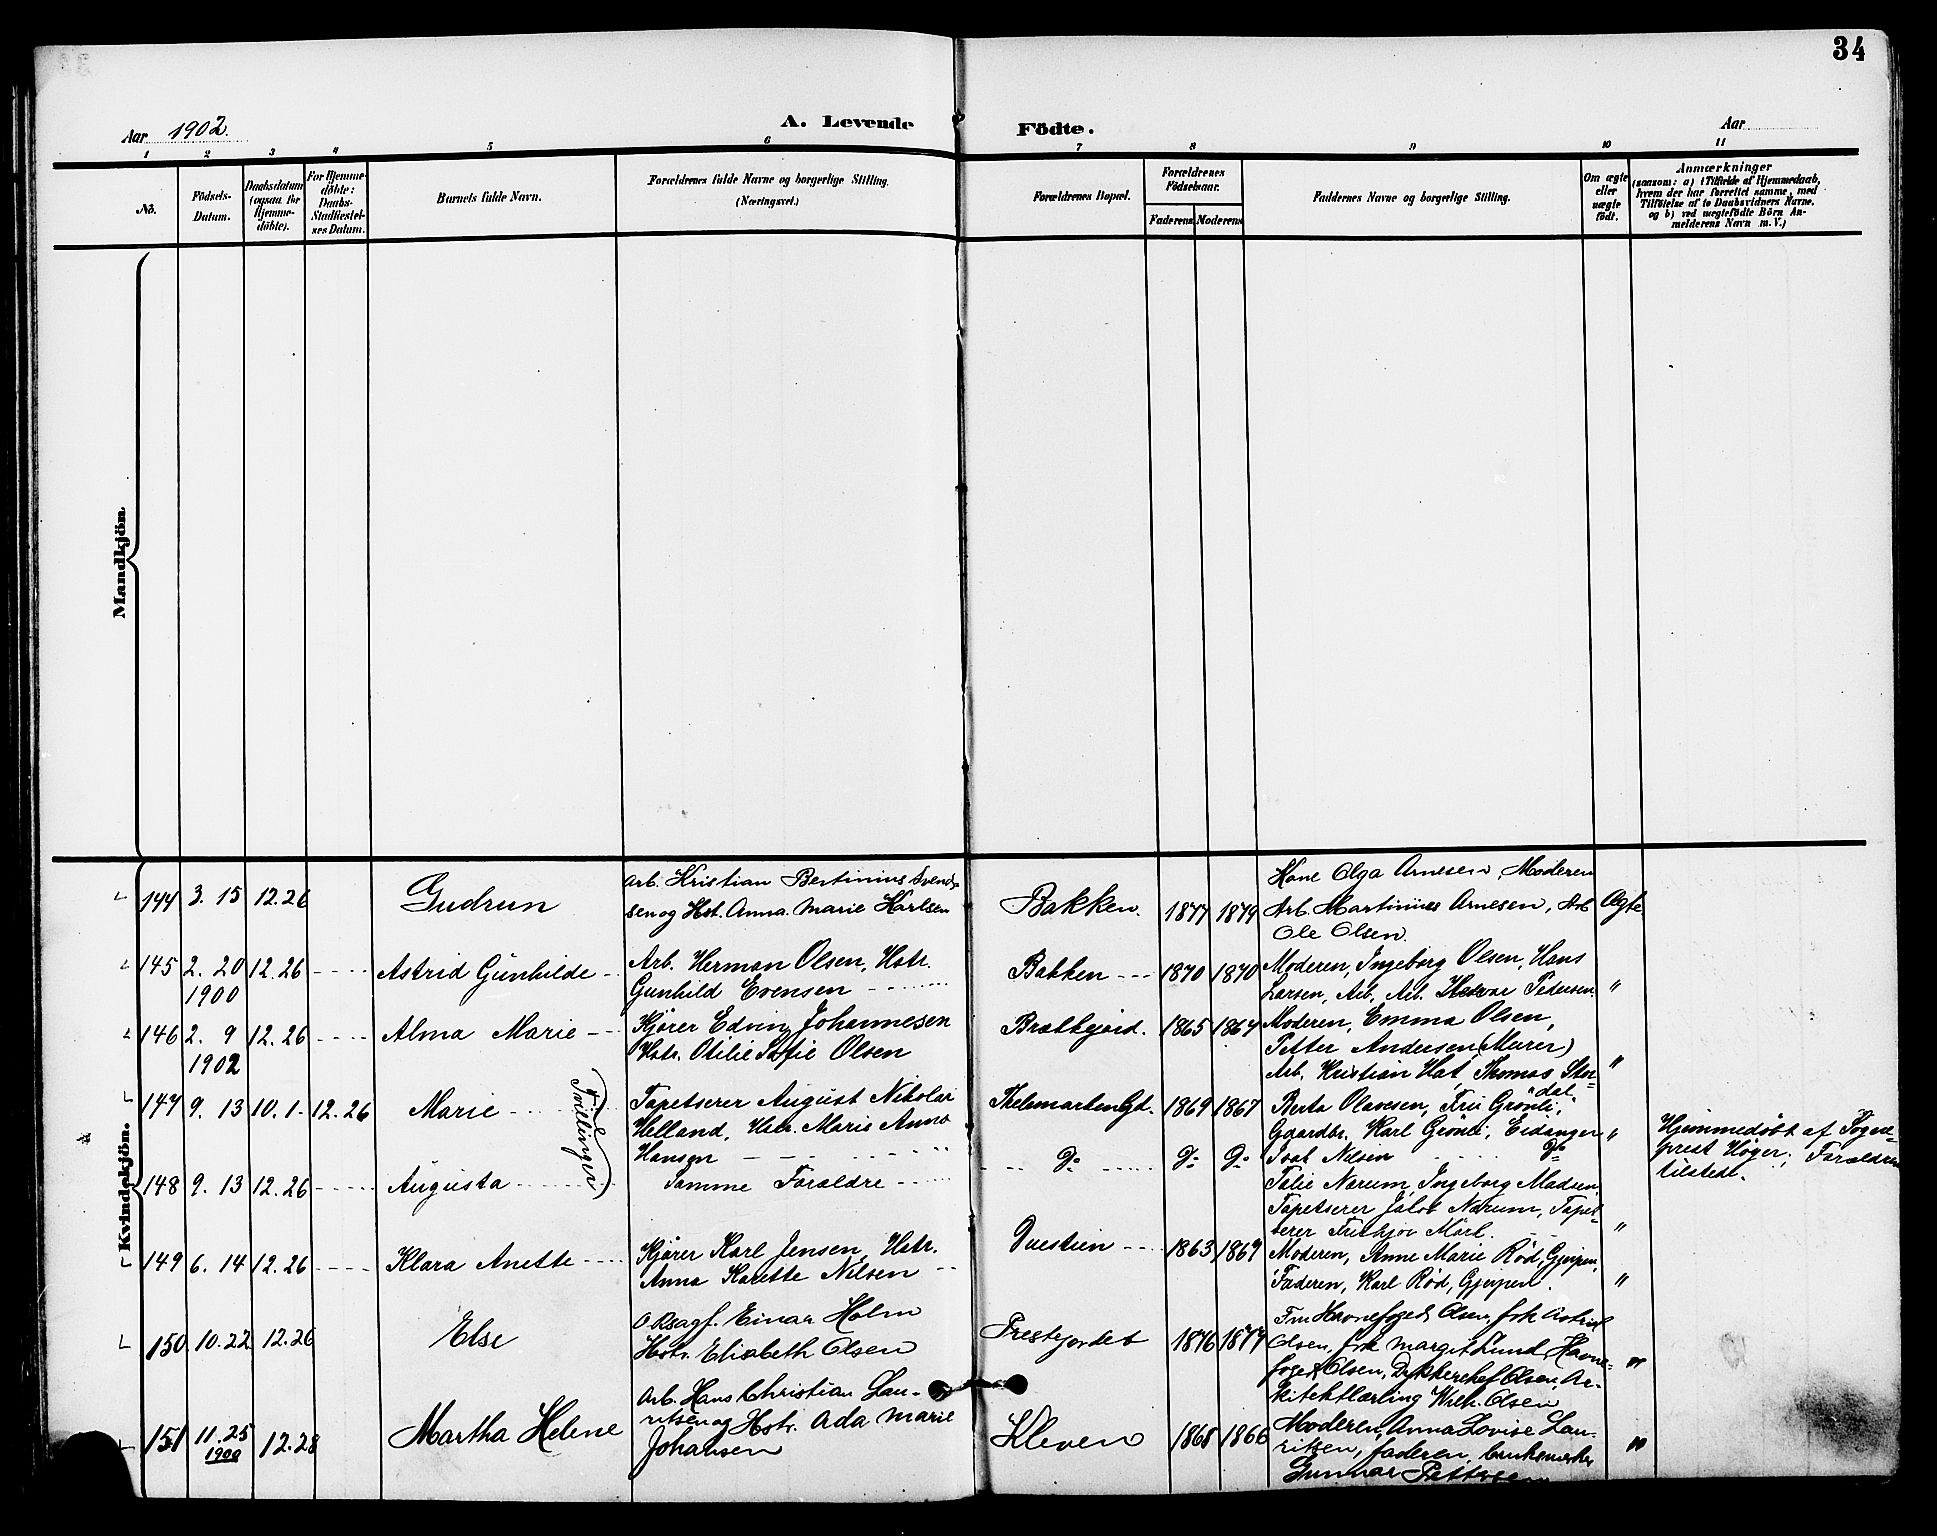 34
Aar 1902.
A. Levende Födte.
Aar
1 2 3 4 5 6 7 8 9 10 11
No.
Födsels-Datum.
Daabsdatum (ogsaa for Hjemme-döbte).
For Hjemme-döbte: Daabs-Stadfæstel-ses Datum.
Barnets fulde Navn.
Forældrenes fulde Navne og borgerlige Stilling.
(Næringsvei.)
Forældrenes Bopæl.
Forældrenes Födselsaar.
Faderens Moderens
Faddernes Navne og borgerlige Stilling.
Om ægte eller uægte födt.
Anmærkninger
(saasom: a) i Tilfælde af Hjemmedaab,
hvem der har forrettet samme, med
Tilföielse af to Daabsvidners Navne,
og b) ved uægtefödte Börn An-
melderens Navn m. V.)
Mandkjön.
Kvindekjön.
144 3. 15 12.26 Gudrun
Arb. Kristian Bertinius Svend-
sen og Hst. Anna Marie Karlsen
Bakken. 1877 1879
Kone Olga Arnesen, Moderen
Arb. Martinius Arnesen, Arb
Ole Olsen.
Ægte
145 2. 20 1900 12.26 Astrid Gunhilde
Arb. Herman Olsen, Hstr.
Gunhild Evensen
Bakken 1870 1870
Moderen, Ingeborg Olsen, Hans
Larsen, Arb, Arb. Pedersen.
"
146 2. 9 1902 12.26 Alma Marie
Kjører Edvin Johannesen
Hstr. Otilie Sofie Olsen
Brætkjørd. 1865 1867
Moderen, Emma Olsen,
Petter Andersen (Murer)
Arb. Kristian Thomas Stor-
dal
"
147 9. 13 10. 1 12.26 Marie
Tvillinger
Tapetserer August Nikolai
Helland, Hstr. Marie Anna
Hansen
Thelemarken Gd. 1869 1867
Berta Olavesen, Fru Grønli,
Gaardbr. Karl Grønli, Eidanger
Nilsen Do
"
Hjemmedøbt af Sogne-
prest Høyer; Forældre
tilstede.
148 9. 13 12.26 Augusta
Samme Forældre
Do Do Do
Talie Narum, Ingeborg Madsen,
Tapetserer Jakob Narum, Tapet-
serer Fritjov Mörl.
"
149 6. 14 12.26 Klara Anette
Kjører Karl Jensen, Hstr.
Anna Karette Nilsen
1863 1869
Moderen, Anne Marie Rød, Gjerpen,
Faderen, Karl Rød, Gjerpen.
"
150 10.22 12.26 Else
O.Rsagf. Einar Holm
Hstr. Elisabeth Olsen
1876 1877
Fru Havnefoged Olsen, frk Astrid
Olsen, frk Margit Lund, Havne-
foged Olsen, Dykkerchef Olsen, Ar-
kitektlærling Wilh. Olsen
"
151 11.25 1900 12.28 Martha Helene
Arb. Hans Christian Lau-
ritsen og Hstr. Ada Marie
Johansen
Kleven 1868 1866
Moderen, Anna Lovise Lau-
ritsen, faderen,
Gunnar Pettersen
"